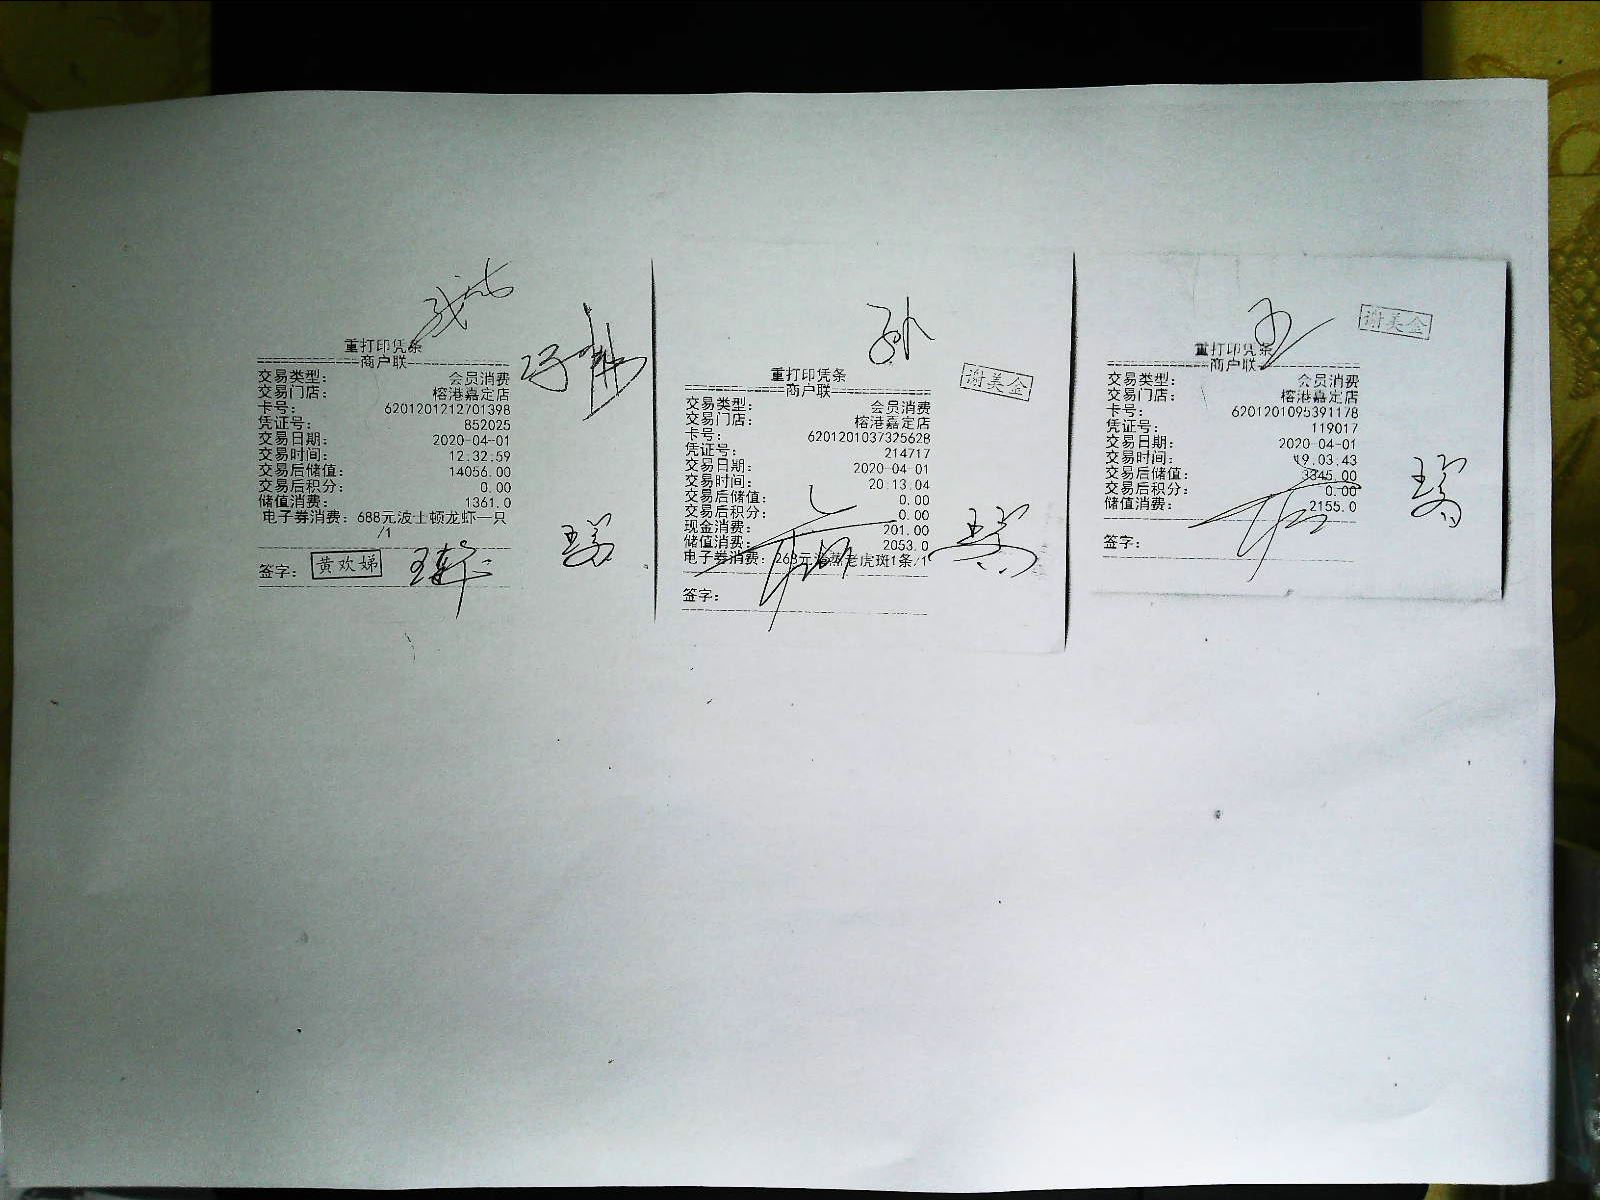 重打印凭条
商户联
交易类型： 会员消费
交易门店： 榕港嘉定店
卡号： 6201201212701398
凭证号： 852025
交易日期： 2020-04-01
交易时间： 12:32:59
交易后储值： 14056.00
交易后积分： 0.00
储值消费： 1361.0
电子券消费：688元波士顿龙虾一只
/1
签字： 黄欢娣
孙
谢美金
重打印凭条
商户联
交易类型： 会员消费
交易门店： 榕港嘉定店
卡号： 6201201037325628
凭证号： 214717
交易日期： 2020-04-01
交易时间： 20:13:04
交易后储值： 0.00
交易后积分： 0.00
现金消费： 201.00
储值消费： 2053.0
电子券消费：268元清蒸老虎斑1条/1
签字：
王
谢美金
重打印凭条
商户联
交易类型： 会员消费
交易门店： 榕港嘉定店
卡号： 6201201095391178
凭证号： 119017
交易日期： 2020-04-01
交易时间： 19:03:43
交易后储值： 3345.00
交易后积分： 0.00
储值消费： 2155.0
签字：